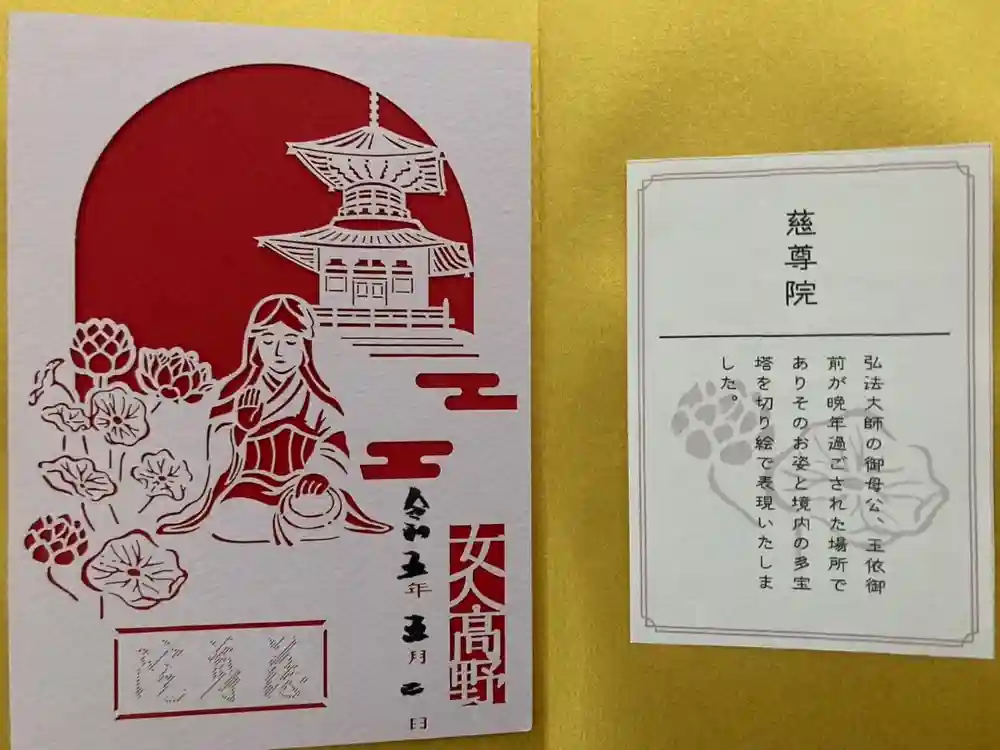 慈尊院
弘法大師の御母公、玉依御
前が晩年過ごされた場所で
ありそのお姿と境内の多宝
塔を切り絵で表現いたしま
した。
女人高野
令和五年五月二日
慈尊院